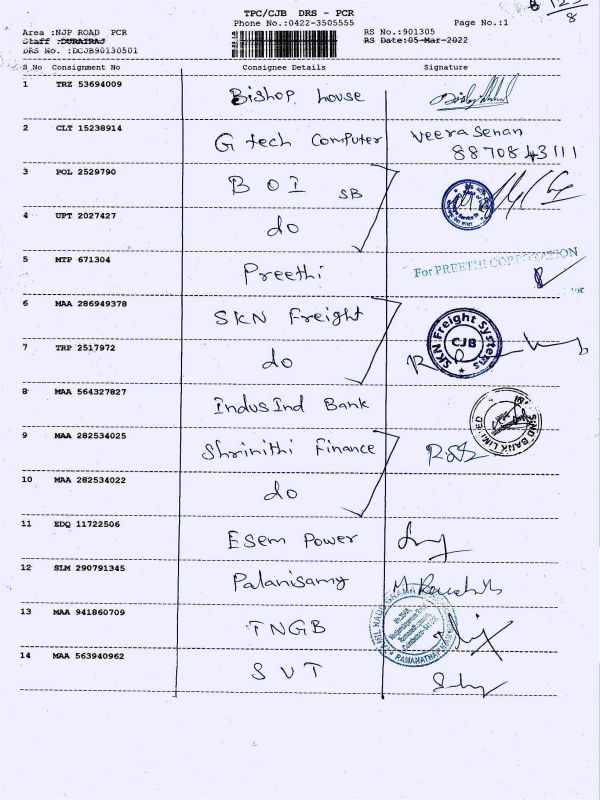 TPC/CJB DRS - PCR
Phone No.:0422-3505555 Page No.:1
8
Area :NJP ROAD PCR RS No.:901305
Staff :DURAIRAJ RS Date:05-Mar-2022
DRS No. :DCJB90130501
S No Consignment No Consignee Details Signature
1 TRZ 53694009 Bishop house
2 CLT 15238914 G tech Computer Veera Senan
8870843111
3 POL 2529790 B O I SB
4 UPT 2027427 do
5 MTP 671304 Preethi For PREETHI CORPORATION
6 MAA 286949378 SKN Freight SKN Freight Systems
CJB
7 TRP 2517972 do
8 MAA 564327827 IndusInd Bank BANK LIMITED
9 MAA 282534025 Shrinithi Finance
10 MAA 282534022 do
11 EDQ 11722506 Esem Power
12 SLM 290791345 Palanisamy
13 MAA 941860709 TNGB RAMANATHAPURAM
14 MAA 563940962 S V T